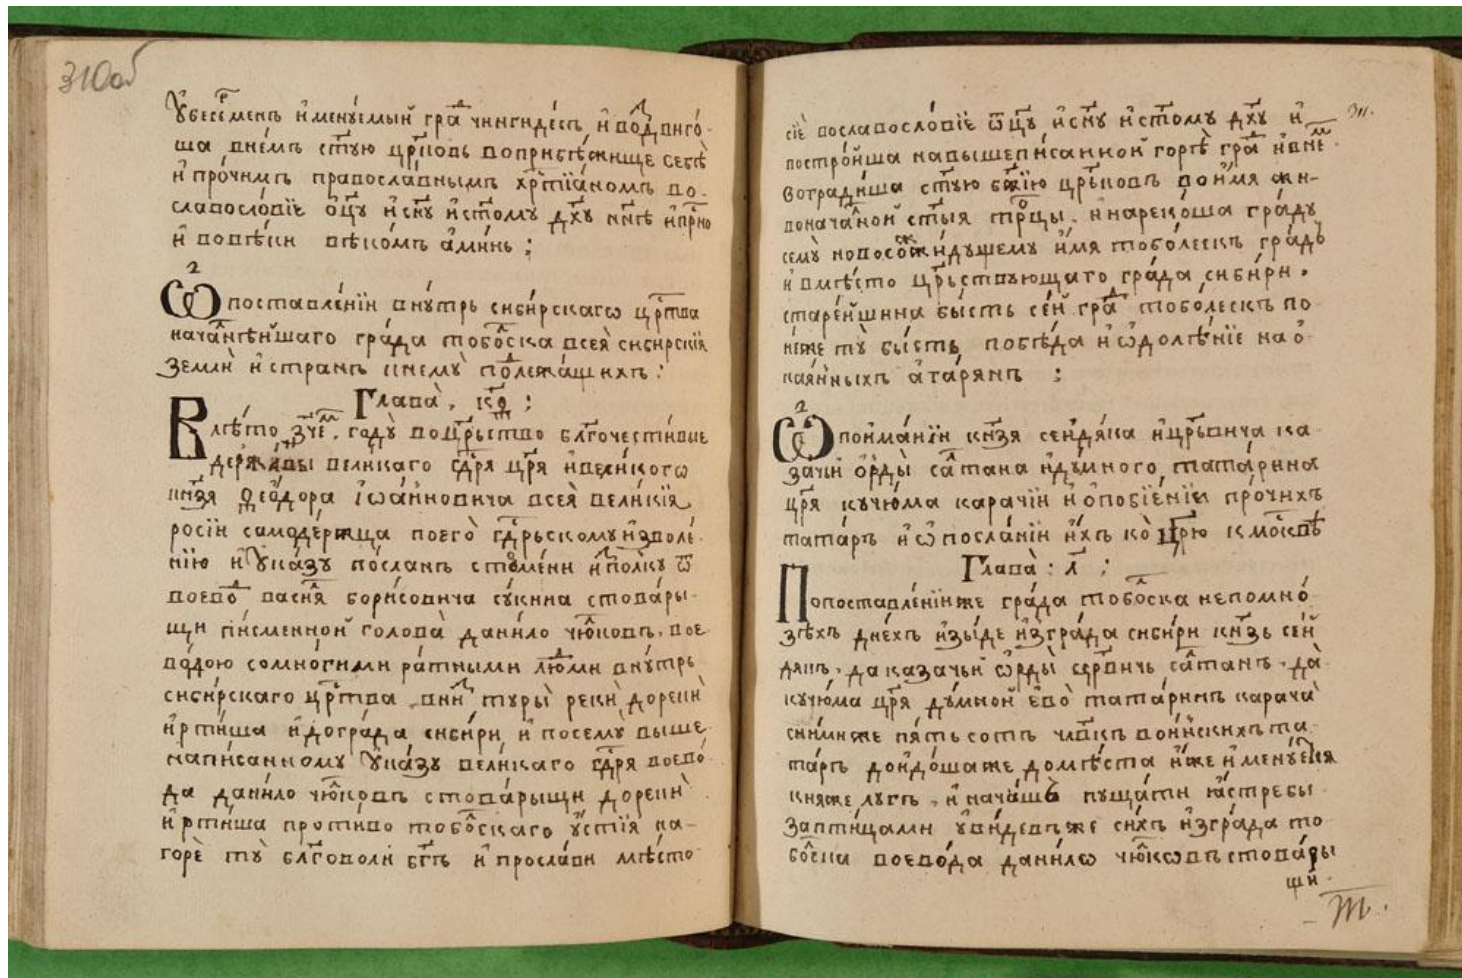 310об
ꙋбесермень и҆менꙋемый гра чингиде́съ, и҆ воздвиго́-
ша внемъ ст҃ꙋю цр҃ковь воприбѣ́жище себѣ̀
и҆ про́чимъ правосла́внымъ хр҃тїа́номъ во
славосло́вїе ѻ҆ц҃ꙋ и҆ сн҃ꙋ и҆ ст҃омꙋ дх҃ꙋ нн҃ѣ и҆ пр҃но
и҆ вовѣ́ки вѣко́мъ а҆ми́нь ;
Ѡ поставле́нїи внꙋ́трь сиби́рскагѡ цр҃тва
нача́лнѣйшаго гра́да тобо́лска всея̀ сиби́рскїѧ
землѝ и҆ странъ кнемꙋ̀ подлежа́щихъ :
Глава̀, к҃ѳ :
Влѣ́то зч҃е, годꙋ̀ воцр҃ьство бл҃гочести́выѧ
держа́вы вели́каго гдр҃ѧ цр҃ѧ и҆ вели́когѡ
кн҃зя ѳео́дора і҆ѡа́нновича всея̀ вели́кїѧ
росі́и самоде́ржца поего̀ гдр҃ьскомꙋ и҆зволе́-
нїю и҆ ꙋка́зꙋ по́сланъ стюме́ни и҆ полкꙋ ѿ
воево́д васи́лѧ бори́совича сꙋ́кина стова́ры-
щи пи́сменной голова̀ дани́ло чюлко́въ, вое
во́дою сомно́гими ра́тными людми внꙋ́трь
сиби́рскаго цр҃тва, вниз тꙋры̀ рекѝ дорекѝ
и҆рти́ша и҆ догра́да сиби́ри, и҆ посемꙋ̀ выше
напи́санномꙋ ꙋка́зꙋ вели́каго гдр҃ѧ воево́
да дани́ло чюлко́въ стова́рыщи дорекѝ
и҆рти́ша проти́во тобо́лскаго ꙋ́стїѧ на-
горѐ тꙋ̀ бл҃говоли бг҃ъ и҆ просла́ви мѣ́сто
сїѐ вославосло́вїе ѻ҆ц҃ꙋ и҆ сн҃ꙋ и҆ ст҃омꙋ дх҃ꙋ и҆
постро́йша навышепи́санной горѣ̀ град и҆ внем
воградиша ст҃ꙋю бж҃їю цр҃ковъ во и҆мя жи-
воначалной ст҃ыя тр҃цы, и҆ нареко́ша гра́дꙋ
семꙋ̀ новосо́жидꙋщемꙋ и҆́мя тобо́лескъ гра́дъ
и҆ вмѣ́сто цр҃ьствꙋющаго гра́да сиби́ри.
старе́йшина бы́сть се́й град тоболескъ по
не́же тꙋ̀ бы́сть побѣ́да и҆ ѡдолѣ́нїе на о҆
кая́нныхъ а҆гарянъ :
Ѡ пои҆ма́нїи кн҃зя сейдя́ка и҆ цр҃ьвича ка-
зачьи о҆рды̀ салтана и҆ дꙋ́много, тата́рина
цр҃ѧ кꙋчю́ма карачі́и и҆ ѻ҆побїе́нїи про́чихъ
тата́ръ и҆ ѡ посла́нїи и҆́хъ ко цр҃ю кмосквѣ
Глава̀ : л҃ :
Попоставле́нїи же гра́да тобо́лска непомно́
зѣхъ дне́хъ и҆зы́де и҆згра́да сиби́ри кн҃зь сей
дякъ, да каза́чьи ѡ҆рды̀ цр҃вичь салтанъ, да
кꙋчю́ма цр҃я дꙋ́мной ево̀ тата́ринъ карача̀
сни́ми же пя́ть сотъ члв҃къ во́инскихъ та-
та́ръ дои҆до́ша же домѣ́ста и҆́же и҆менꙋ́ется
княже лꙋгъ, и҆ нача́шѐ пꙋща́ти я́стребы
запти́цами ꙋ҆ви́девъ же си́хъ и҆згра́да то
бо́лска воево́да дани́лѡ чюлкѡвъ стова́ры
щи.